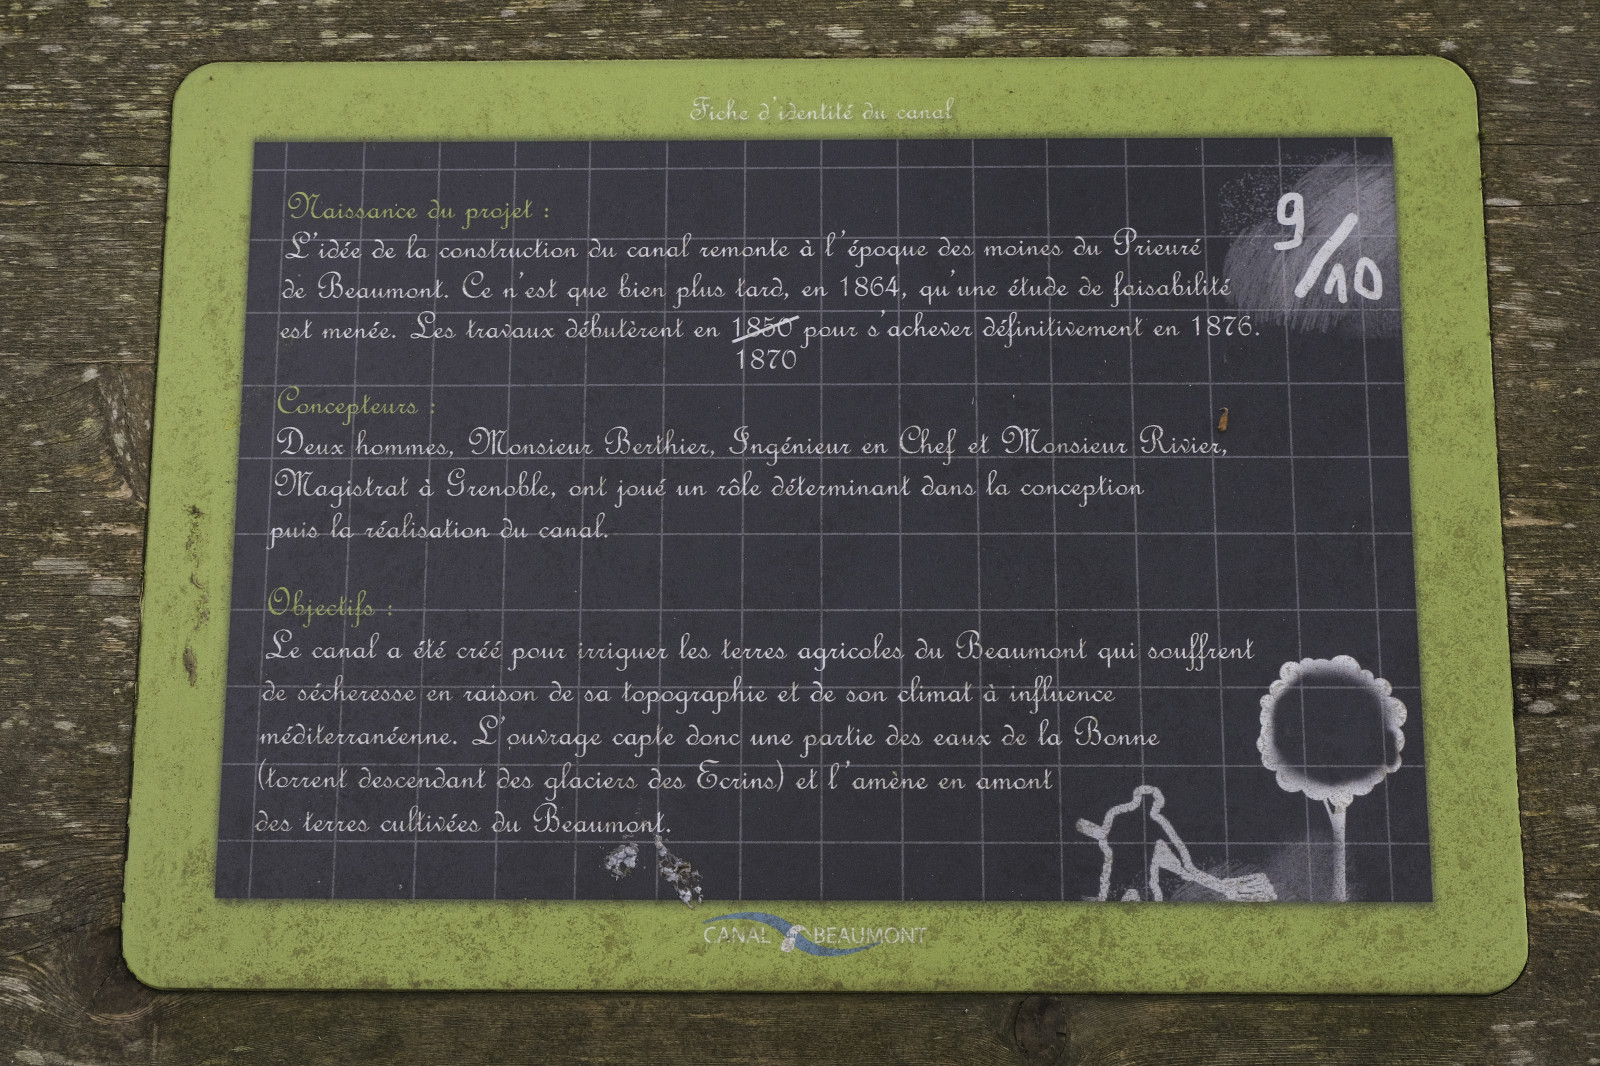 Fiche d'identité du canal
9/10
Naissance du projet :
L'idée de la construction du canal remonte à l'époque des moines du Prieuré
de Beaumont. Ce n'est que bien plus tard, en 1864, qu'une étude de faisabilité
est menée. Les travaux débutèrent en 1850 pour s'achever définitivement en 1876.
1870
Concepteurs :
Deux hommes, Monsieur Berthier, Ingénieur en Chef et Monsieur Rivier,
Magistrat à Grenoble, ont joué un rôle déterminant dans la conception
puis la réalisation du canal.
Objectifs :
Le canal a été créé pour irriguer les terres agricoles du Beaumont qui souffrent
de sécheresse en raison de sa topographie et de son climat à influence
méditerranéenne. L'ouvrage capte donc une partie des eaux de la Bonne
(torrent descendant des glaciers des Ecrins) et l'amène en amont
des terres cultivées du Beaumont.
CANAL BEAUMONT